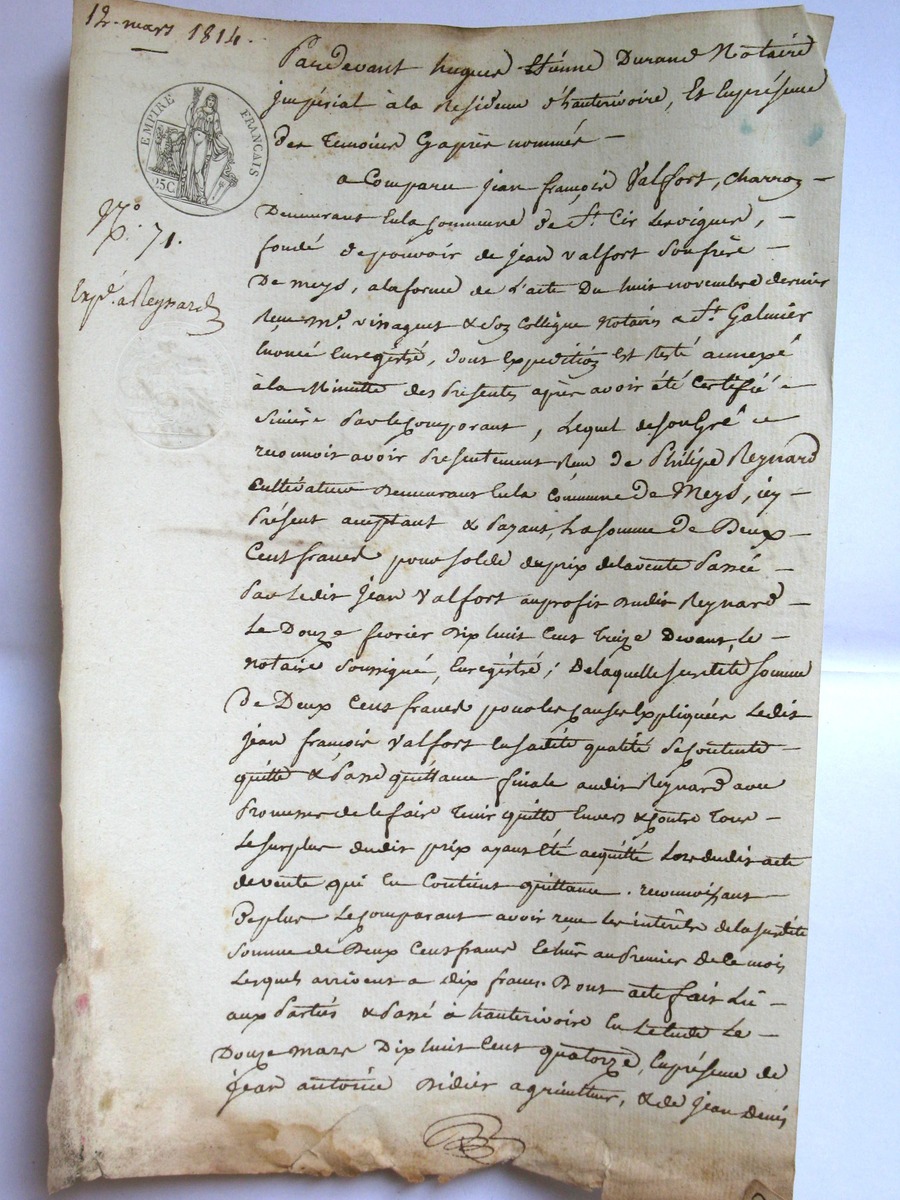 12. mars 1814.
Pardevant hugues Etienne Durand Notaire
impérial à la Residence d'hauterivoire, Et En présence
des temoins Cy après nommés —
EMPIRE FRANÇAIS
25C
a Comparu jean françois Valfort, charron —
Demeurant En la Commune de St. Cir Les vignes, —
N.° 71.
fondé de pouvoir de jean valfort Son frère —
De meys, a la forme de L'acte Du huit novembre dernier
Exp.é a Reynard
Reçu M.e vinagues & Son Collègue Notaires a St. Galmier
Enoncé Enregistré, dont Expedition Est Resté annexé
à la Minutte des Présentes après avoir été Certifié —
Sincère Par le Comparant, Lequel de Son Gré —
reconnoit avoir Présentement Reçu de Philipe Reynard
Cultivateur Demeurant En la Commune De Meys, icy —
Présent acceptant & Payant, La Somme De Deux —
Cent francs pour Solde du prix de la vente Passée —
Par Ledit jean Valfort au profit dudit Reynard —
Le Douze fevrier Dix huit Cent Treize Devant Le —
notaire Soussigné, Enregistré; De laquelle Susdite Somme
De Deux Cent francs pour les Causes Expliquées Ledit
jean françois Valfort En Sadite qualité Se Contente —
quitte & Passe quittance finale audit Reynard avec
Promesse de le faire Tenir quitte Envers & Contre Tous —
Le Surplus dudit prix ayant Eté acquitté Lors dudit acte
de vente qui En Contient quittance. reconnoissant
De plus Le Comparant avoir reçu les intérêts de la Susdite
Somme de Deux Cent francs Echûs au Premier de Ce mois
Lesquels arrivent a dix francs. Dont acte fait Lû —
aux Parties & Passé à hauterivoire En L'etude Le —
Douze mars Dix huit Cent quatorze, En présence de
jean antoine Didier agriculteur, & de jean Denis